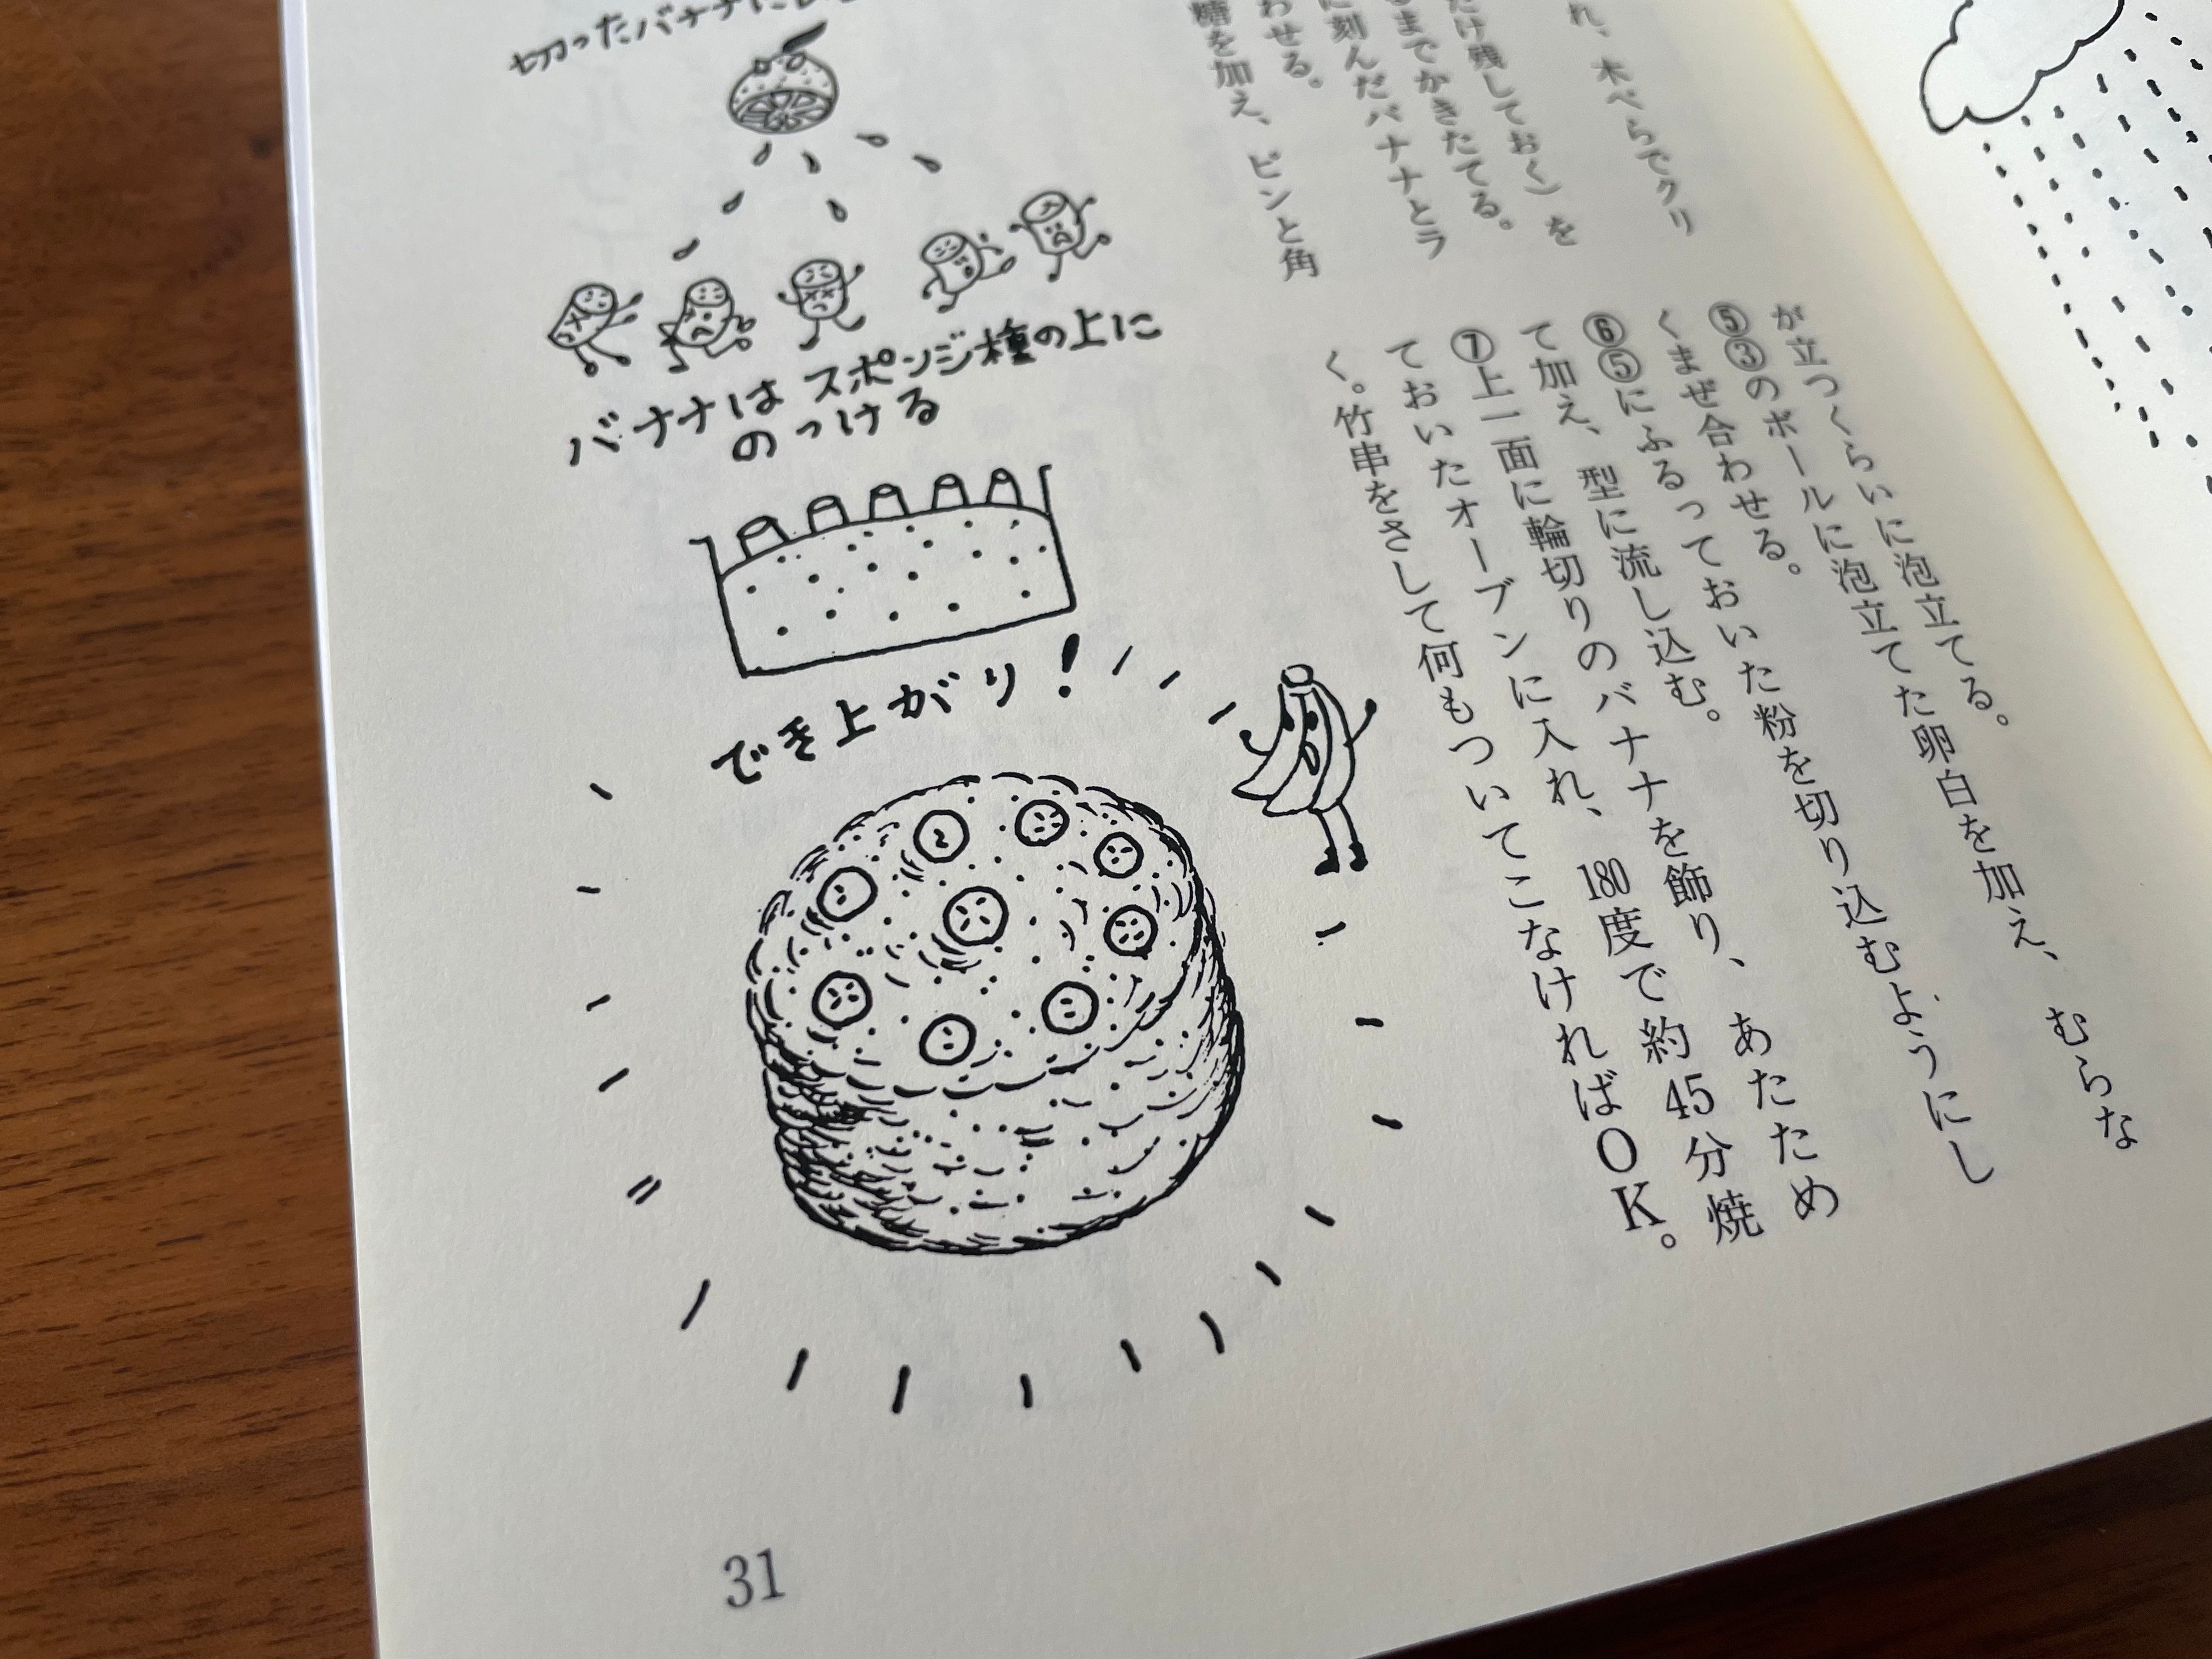 れ、木べらでクリ
だけ残しておく）を
るまでかきたてる。
に刻んだバナナとラ
わせる。
糖を加え、ピンと角
が立つくらいに泡立てる。
⑤③のボールに泡立てた卵白を加え、むらな
くまぜ合わせる。
⑥⑤にふるっておいた粉を切り込むようにし
て加え、型に流し込む。
⑦上一面に輪切りのバナナを飾り、あたため
ておいたオーブンに入れ、180度で約45分焼
く。竹串をさして何もついてこなければOK。
切ったバナナに
バナナは スポンジ種の上に
のっける
でき上がり！
31